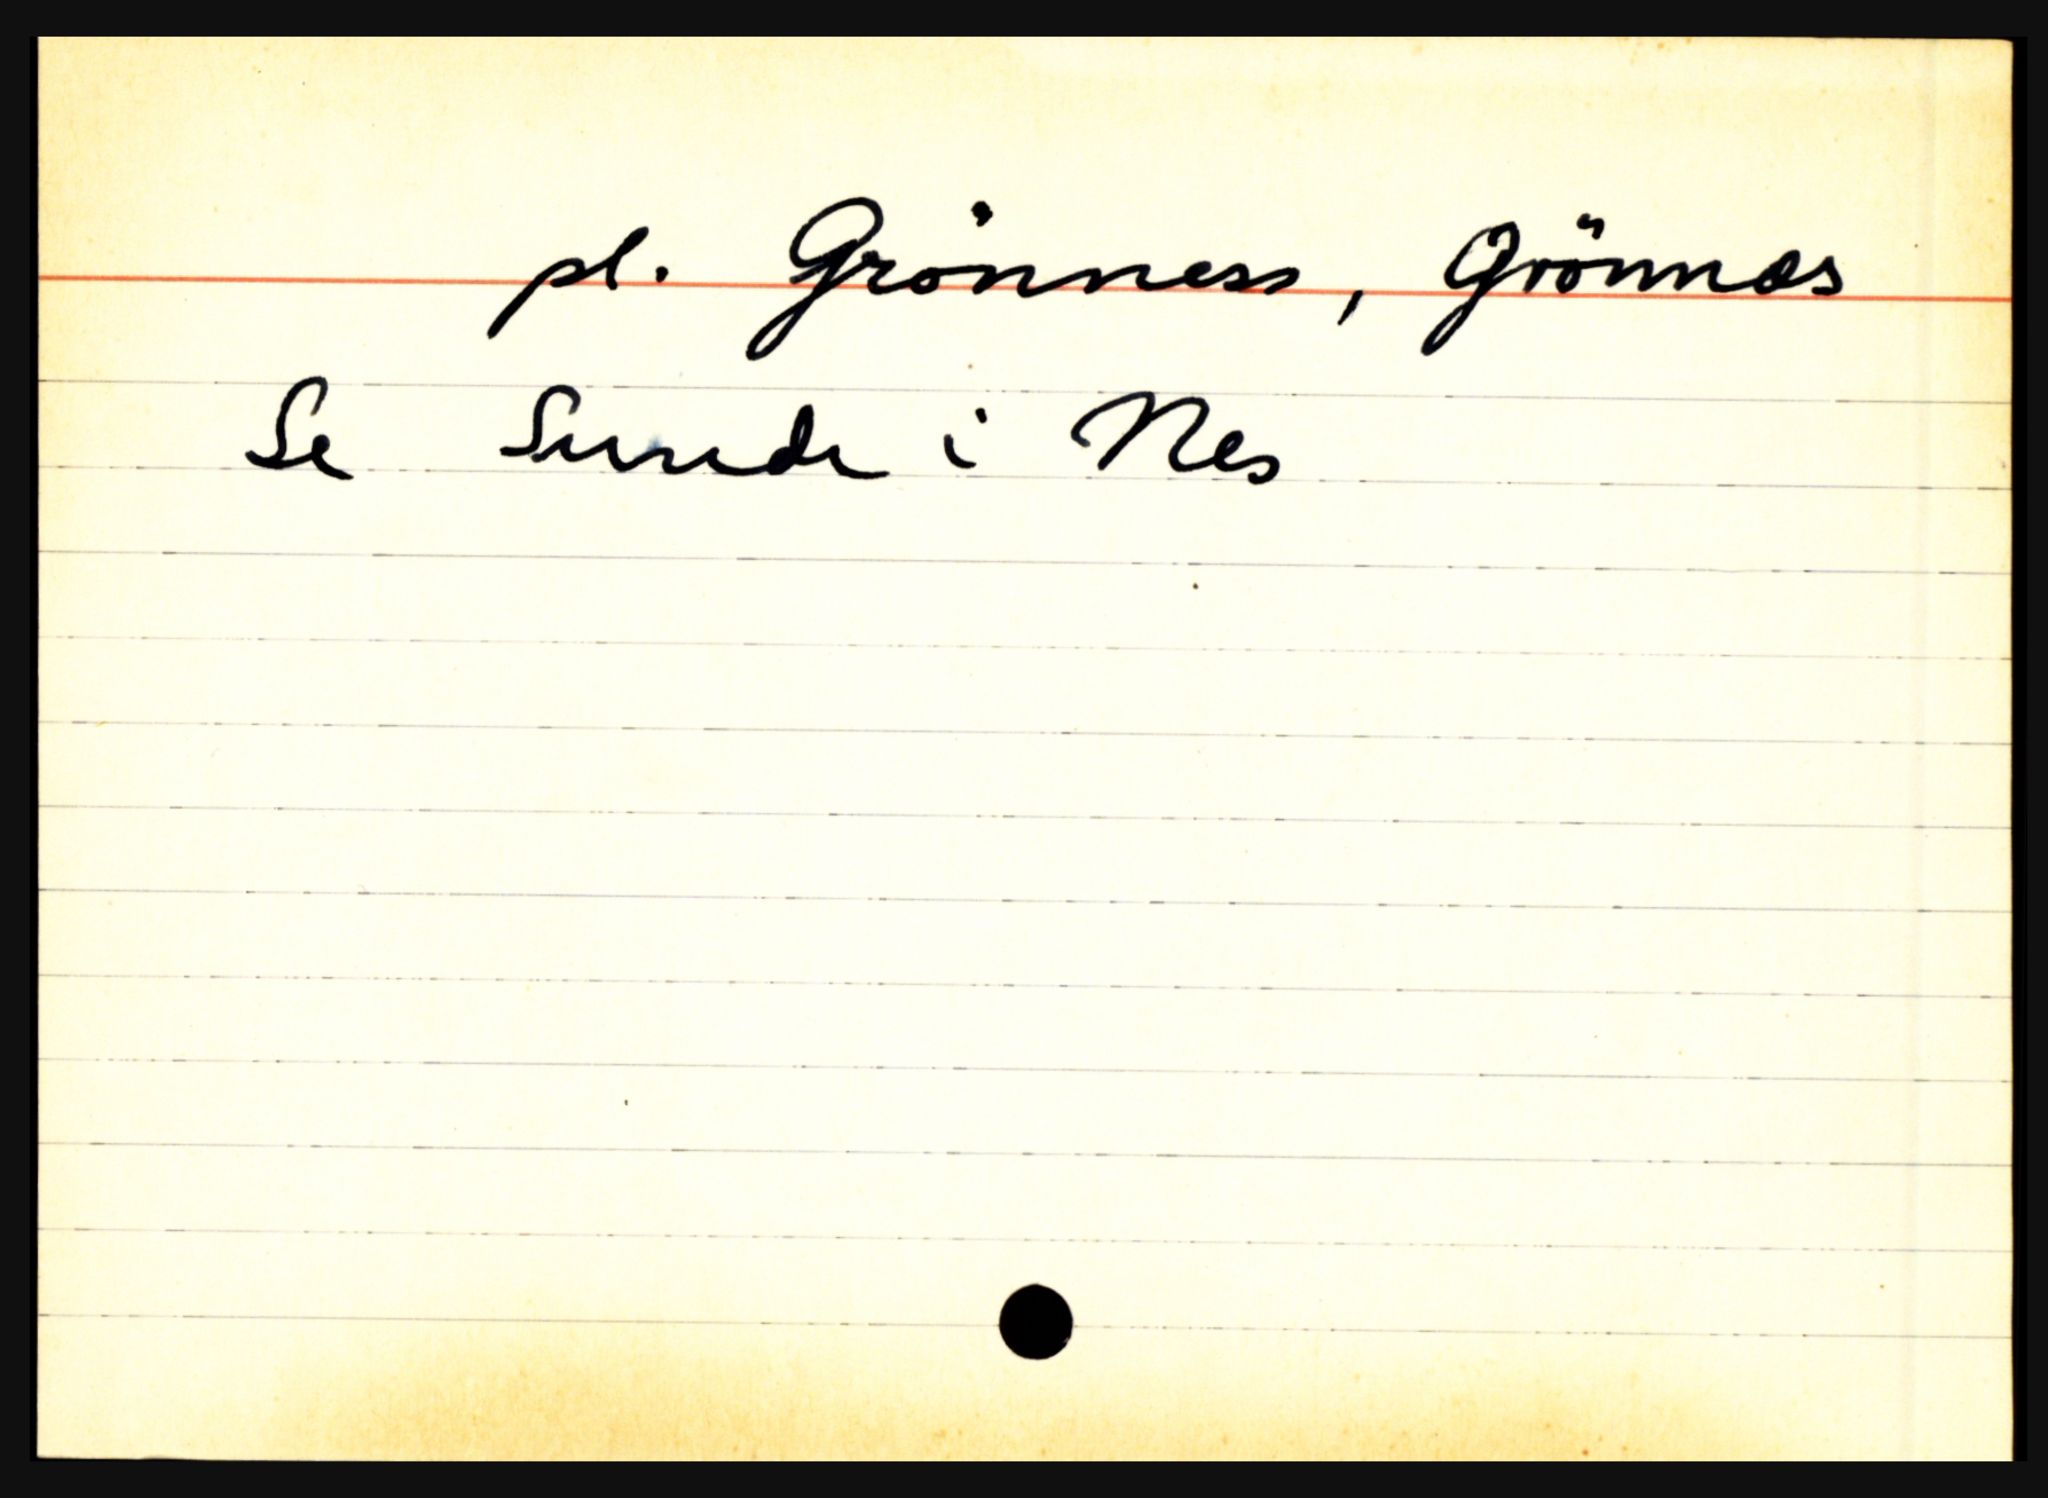 pl. Grönness, Grönnæs
Se Sunde i Nes